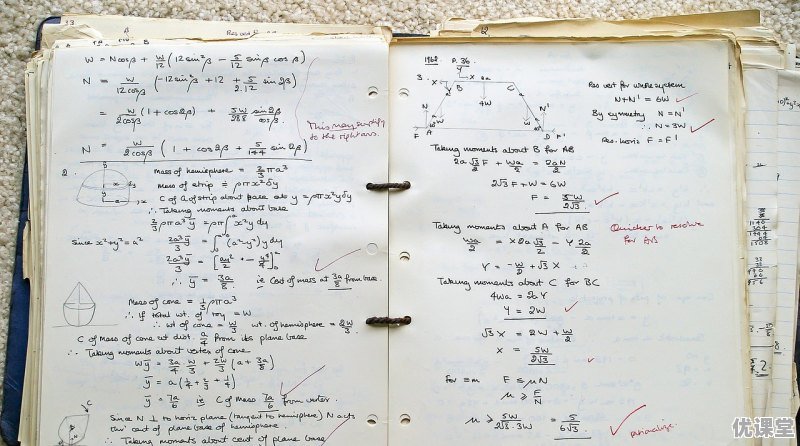 33
W = Ncosβ + W/12 (12 sin²β − 5/12 sinβ cosβ)
N = W/12cosβ (-12sin²β + 12 + 5/2.12 sin2β)
= W/2cosβ (1 + cos2β) + 5W/288 sin2β/cosβ.
This may simplify
to the right ans.
N = W/2cosβ (1 + cos2β + 5/144 sin2β)
2.
Mass of hemisphere = 2/3 ρπa³
Mass of strip = ρπx²δy
C of G of strip about base at y = ρπx²yδy
∴ Taking moments about base
2/3 ρπa³ȳ = ρπ∫x²y dy
since x²+y²=a²
2a³ȳ/3 = ∫(a²-y²)y dy
∴ ȳ = 3a/8 ie Cent of mass at 3a/8 from base.
Mass of cone = 1/3 ρπa³
∴ If total wt. of toy = W
∴ wt of cone = W/3 wt. of hemisphere = 2W/3
C of Mass of cone at dist. a/4 from its plane base
∴ Taking moments about vertex of cone
Wȳ = 3a/4 W/3 + 2W/3 (a + 3a/8)
ȳ = 7a/6 ie C of mass 7a/6 from vertex.
Since N ⊥ to horiz plane (tangent to hemisphere) N acts
thro' cent of plane base of hemisphere.
∴ Taking moments about cent of plane base
1968 P. 36
3.
Res vert for whole system
N+N' = 6W
By symmetry N = N'
∴ N = 3W
Res. horiz F = F'
Taking moments about B for AB
2a√3/2 F + Wa/2 = 2aN/2
2√3F + W = 6W
F = 5W/2√3
Taking moments about A for AB
Quicker to resolve
for AB
Wa/2 = X2a√3/2 − Y 2a/2
Y = -W/2 + √3 X
Taking moments about C for BC
4Wa = 2aY
Y = 2W
√3X = 2W + W/2
X = 5W/2√3
F ≤ μN
μ ≥ F/N
μ ≥ 5W/2√3.3W = 5/6√3
优课堂